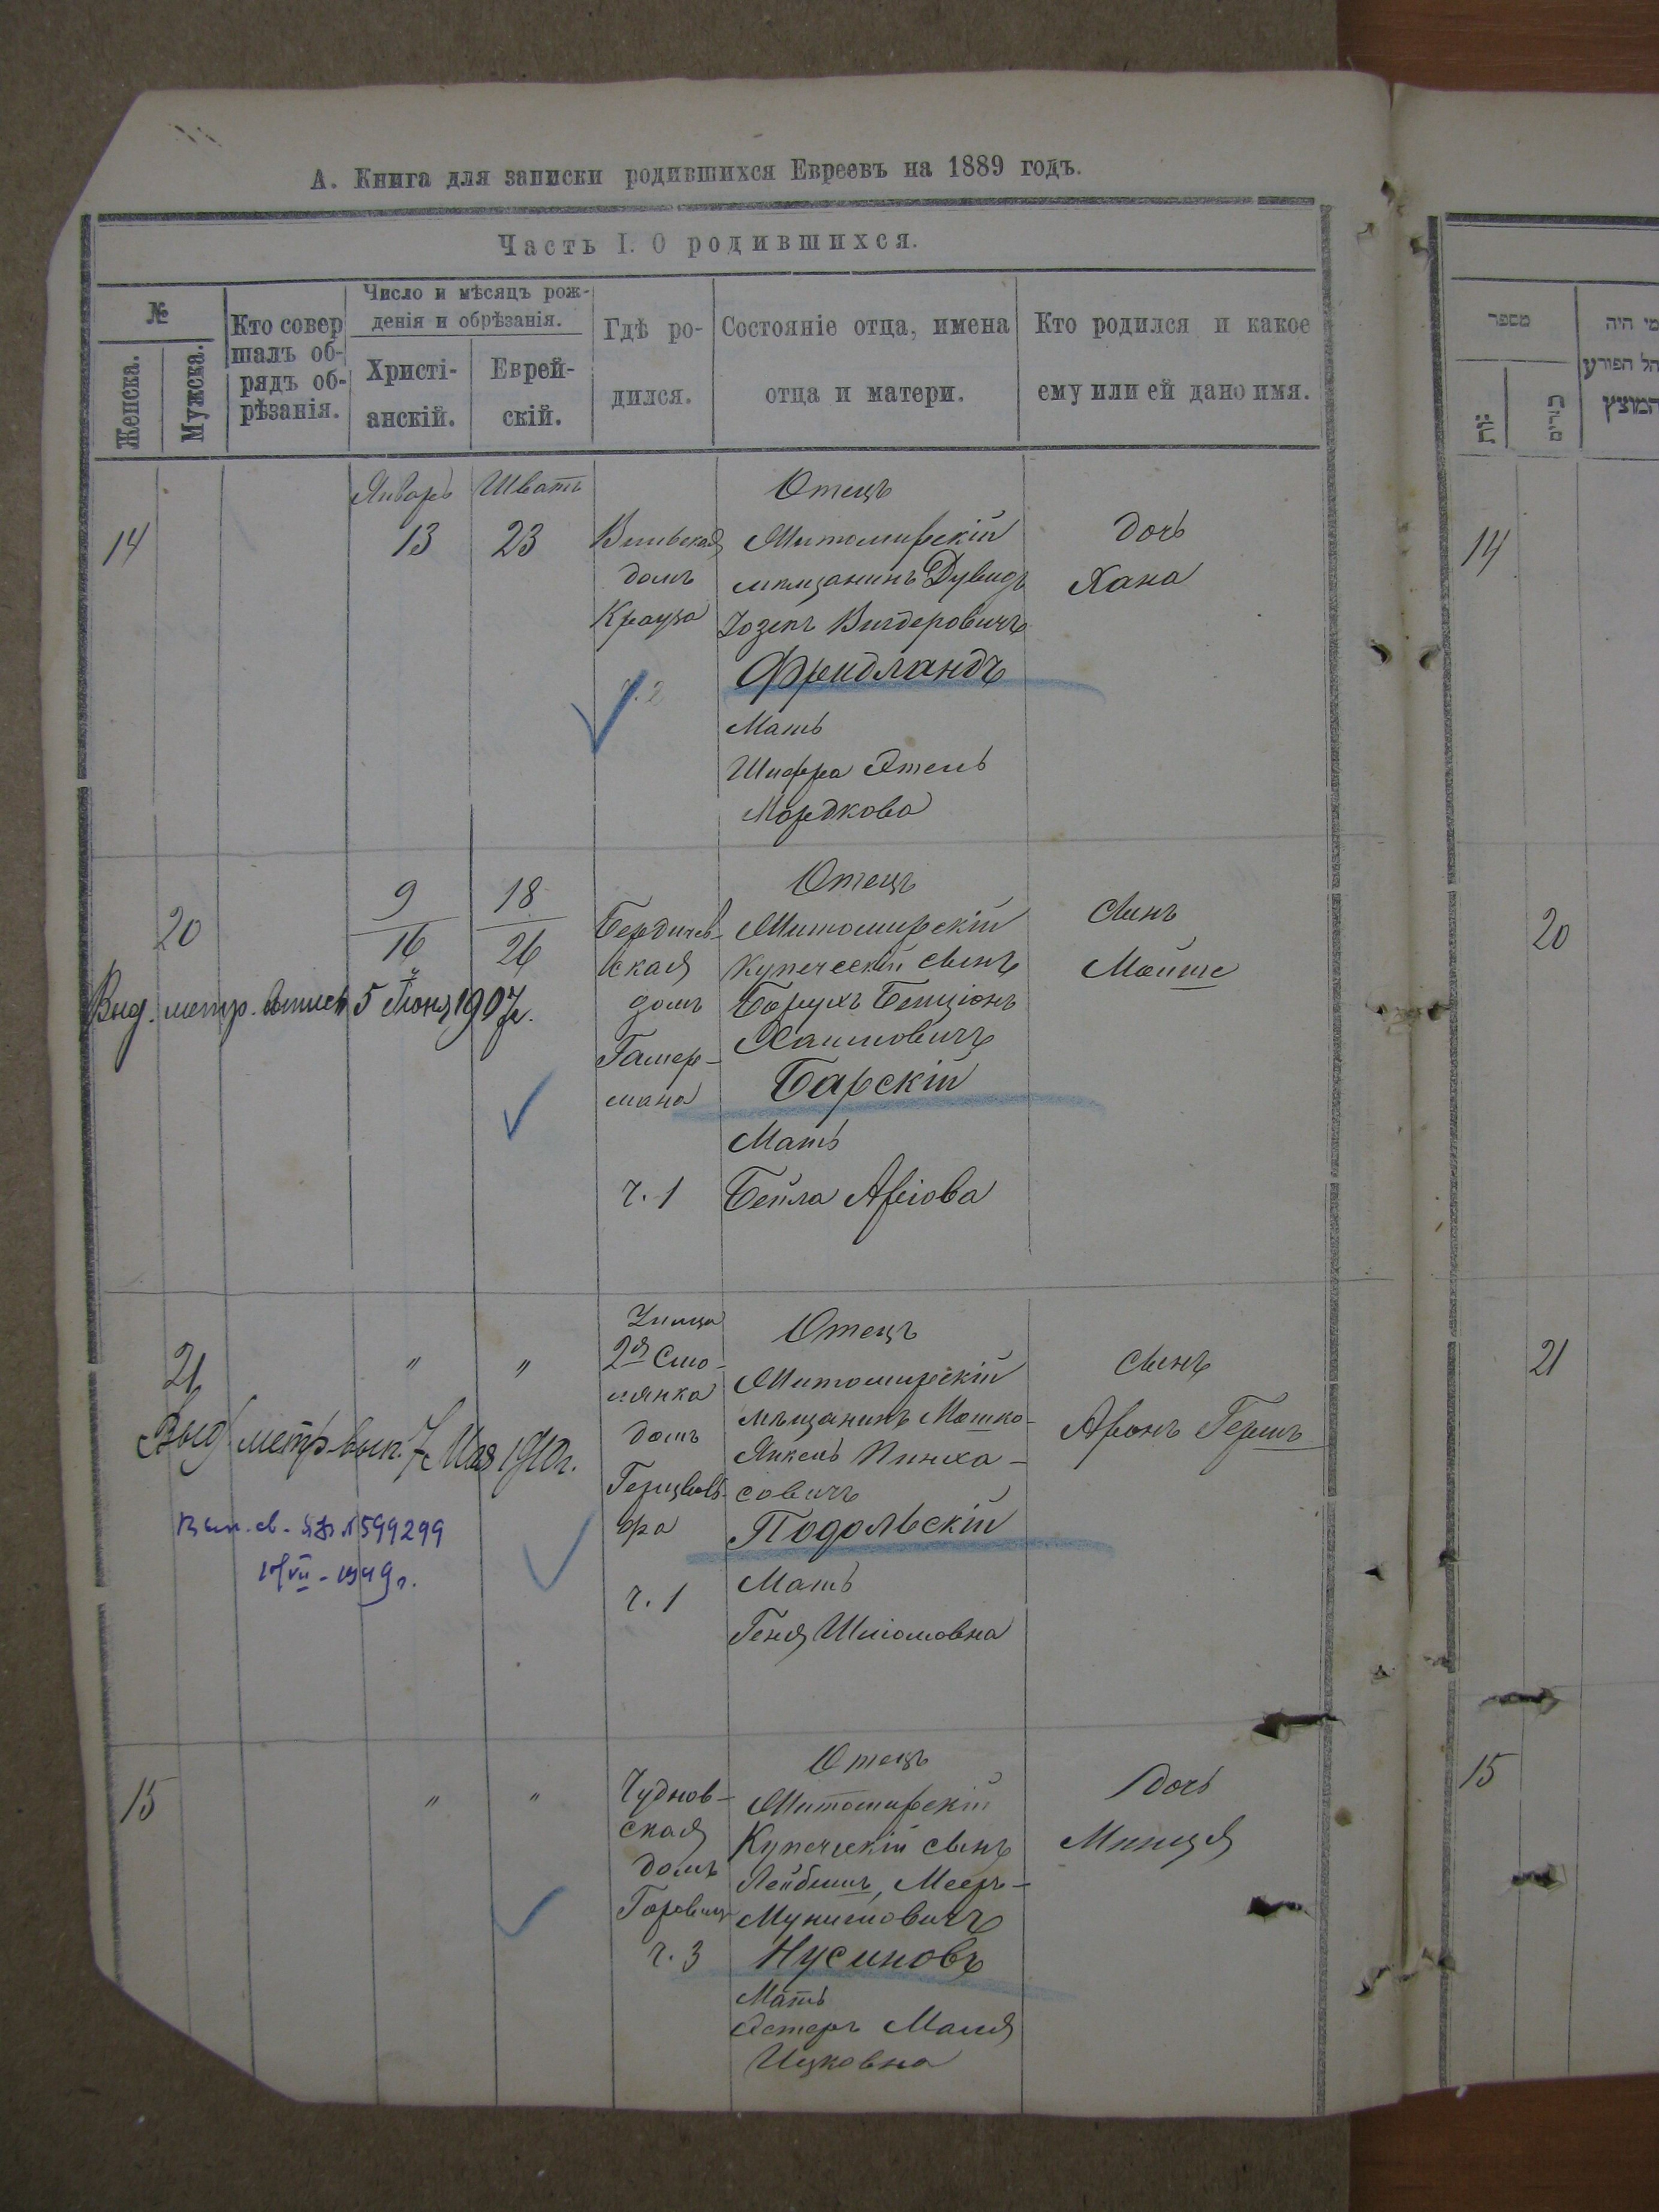 А. Книга для записки родившихся Евреевъ на 1889 годъ.
Часть I. О родившихся.
№
Женска.
Мужска.
Кто совер
шалъ об-
рядъ об-
рѣзанія.
Число и мѣсяцъ рож-
денія и обрѣзанія.
Христі-
анскій.
Еврей-
скій.
Гдѣ ро-
дился.
Состояніе отца, имена
отца и матери.
Кто родился и какое
ему или ей дано имя.
14
Январь
13
Шватъ
23
Вильская
домъ
Крауза
ч. 2
Отецъ
Житомирскій
мѣщанинъ Дувидъ
Іозепъ Вигдеровичъ
Фридландъ
Мать
Шифра Этель
Мордкова
дочь
Хана
20
9
16
18
26
Выд. метр. выпись 5 Іюня 1907 г.
Бердичев-
ская
домъ
Гамер-
мана
ч. 1
Отецъ
Житомирскій
Купеческій сынъ
Борухъ Бенціонъ
Хаимовичъ
Барскій
Мать
Бейла Аріова
сынъ
Мойше
21
"
"
Выд. метр. вып. 7 Мая 1910 г.
599299
VII - 1949 г.
Улица
2я Смо-
лянка
домъ
ра
ч. 1
Отецъ
Житомирскій
мѣщанинъ Мошко-
Янкель Пинха-
совичъ
Подольскій
Мать
Геня Шліомовна
сынъ
Аронъ Гершъ
15
"
"
Чуднов-
ская
домъ
Горвица
ч. 3
Отецъ
Житомирскій
Купеческій сынъ
Лейбишъ, Мееръ-
Мунишовичъ
Нусиновъ
Мать
Эстеръ Маля
Ицковна
дочь
Минця
מספר
14
20
21
15